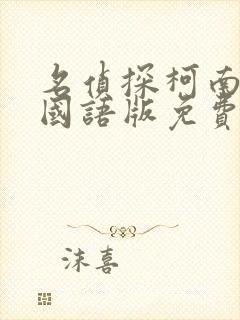 名偵探柯南
國語版免費
沫喜